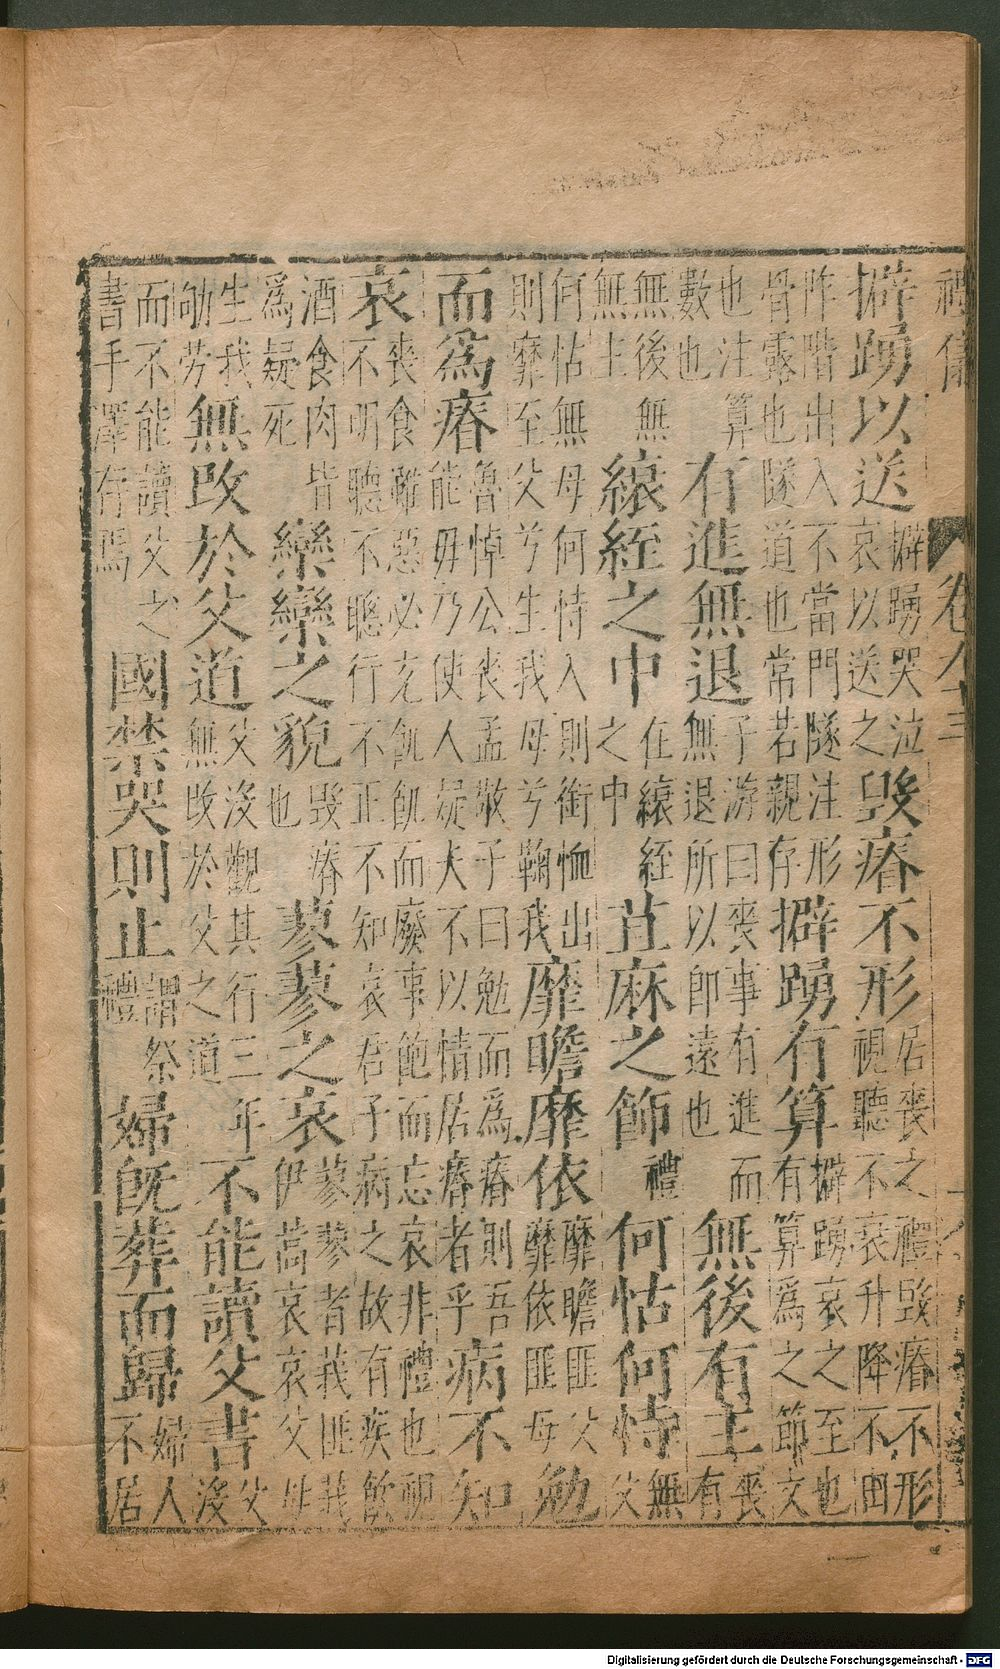 卷六十三
擗踴以送擗踴哭泣哀以送之毀瘠不形居喪之禮毀瘠不形視聽不衰升降不由
阼階出入不當門隧注形骨露也隧道也常若親存擗踴有算擗踴哀之至也有算為之節文
也注算數也有進無退子游曰喪事有進而無退所以即遠也無後有主喪有
無後無無主縗絰之中在縗絰之中苴麻之節禮何怙何恃無父
何怙無母何恃入則銜恤出則靡至父兮生我母兮鞠我靡瞻靡依靡瞻匪父靡依匪母勉
而爲瘠魯悼公喪孟敬子曰勉而爲瘠則吾能毋乃使人疑夫不以情居瘠者乎病不知
哀喪食雖惡必充飢飢而廢事飽而忘哀非禮也視不明聽不聰行不正不知哀君子病之故有疾飲
酒食肉皆爲疑死欒欒之貌毀瘠也蓼蓼之哀蓼蓼者莪匪莪伊蒿哀哀父母
生我劬勞無改於父道父沒觀其行三年無改於父之道不能讀父書父沒
而不能讀父之書手澤存焉國禁哭則止謂祭禮婦既葬而歸婦人不居
Digitalisierung gefördert durch die Deutsche Forschungsgemeinschaft - DFG